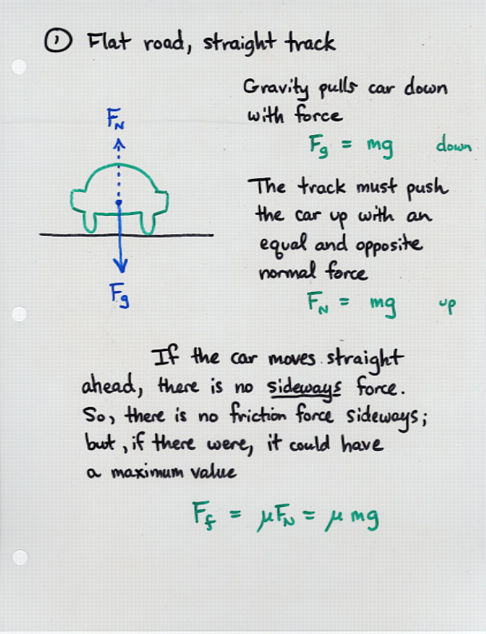 ① Flat road, straight track
Gravity pulls car down
with force
Fg = mg down
FN
The track must push
the car up with an
equal and opposite
normal force
FN = mg up
Fg
If the car moves straight
ahead, there is no sideways force.
So, there is no friction force sideways;
but, if there were, it could have
a maximum value
Ff = μFN = μ mg